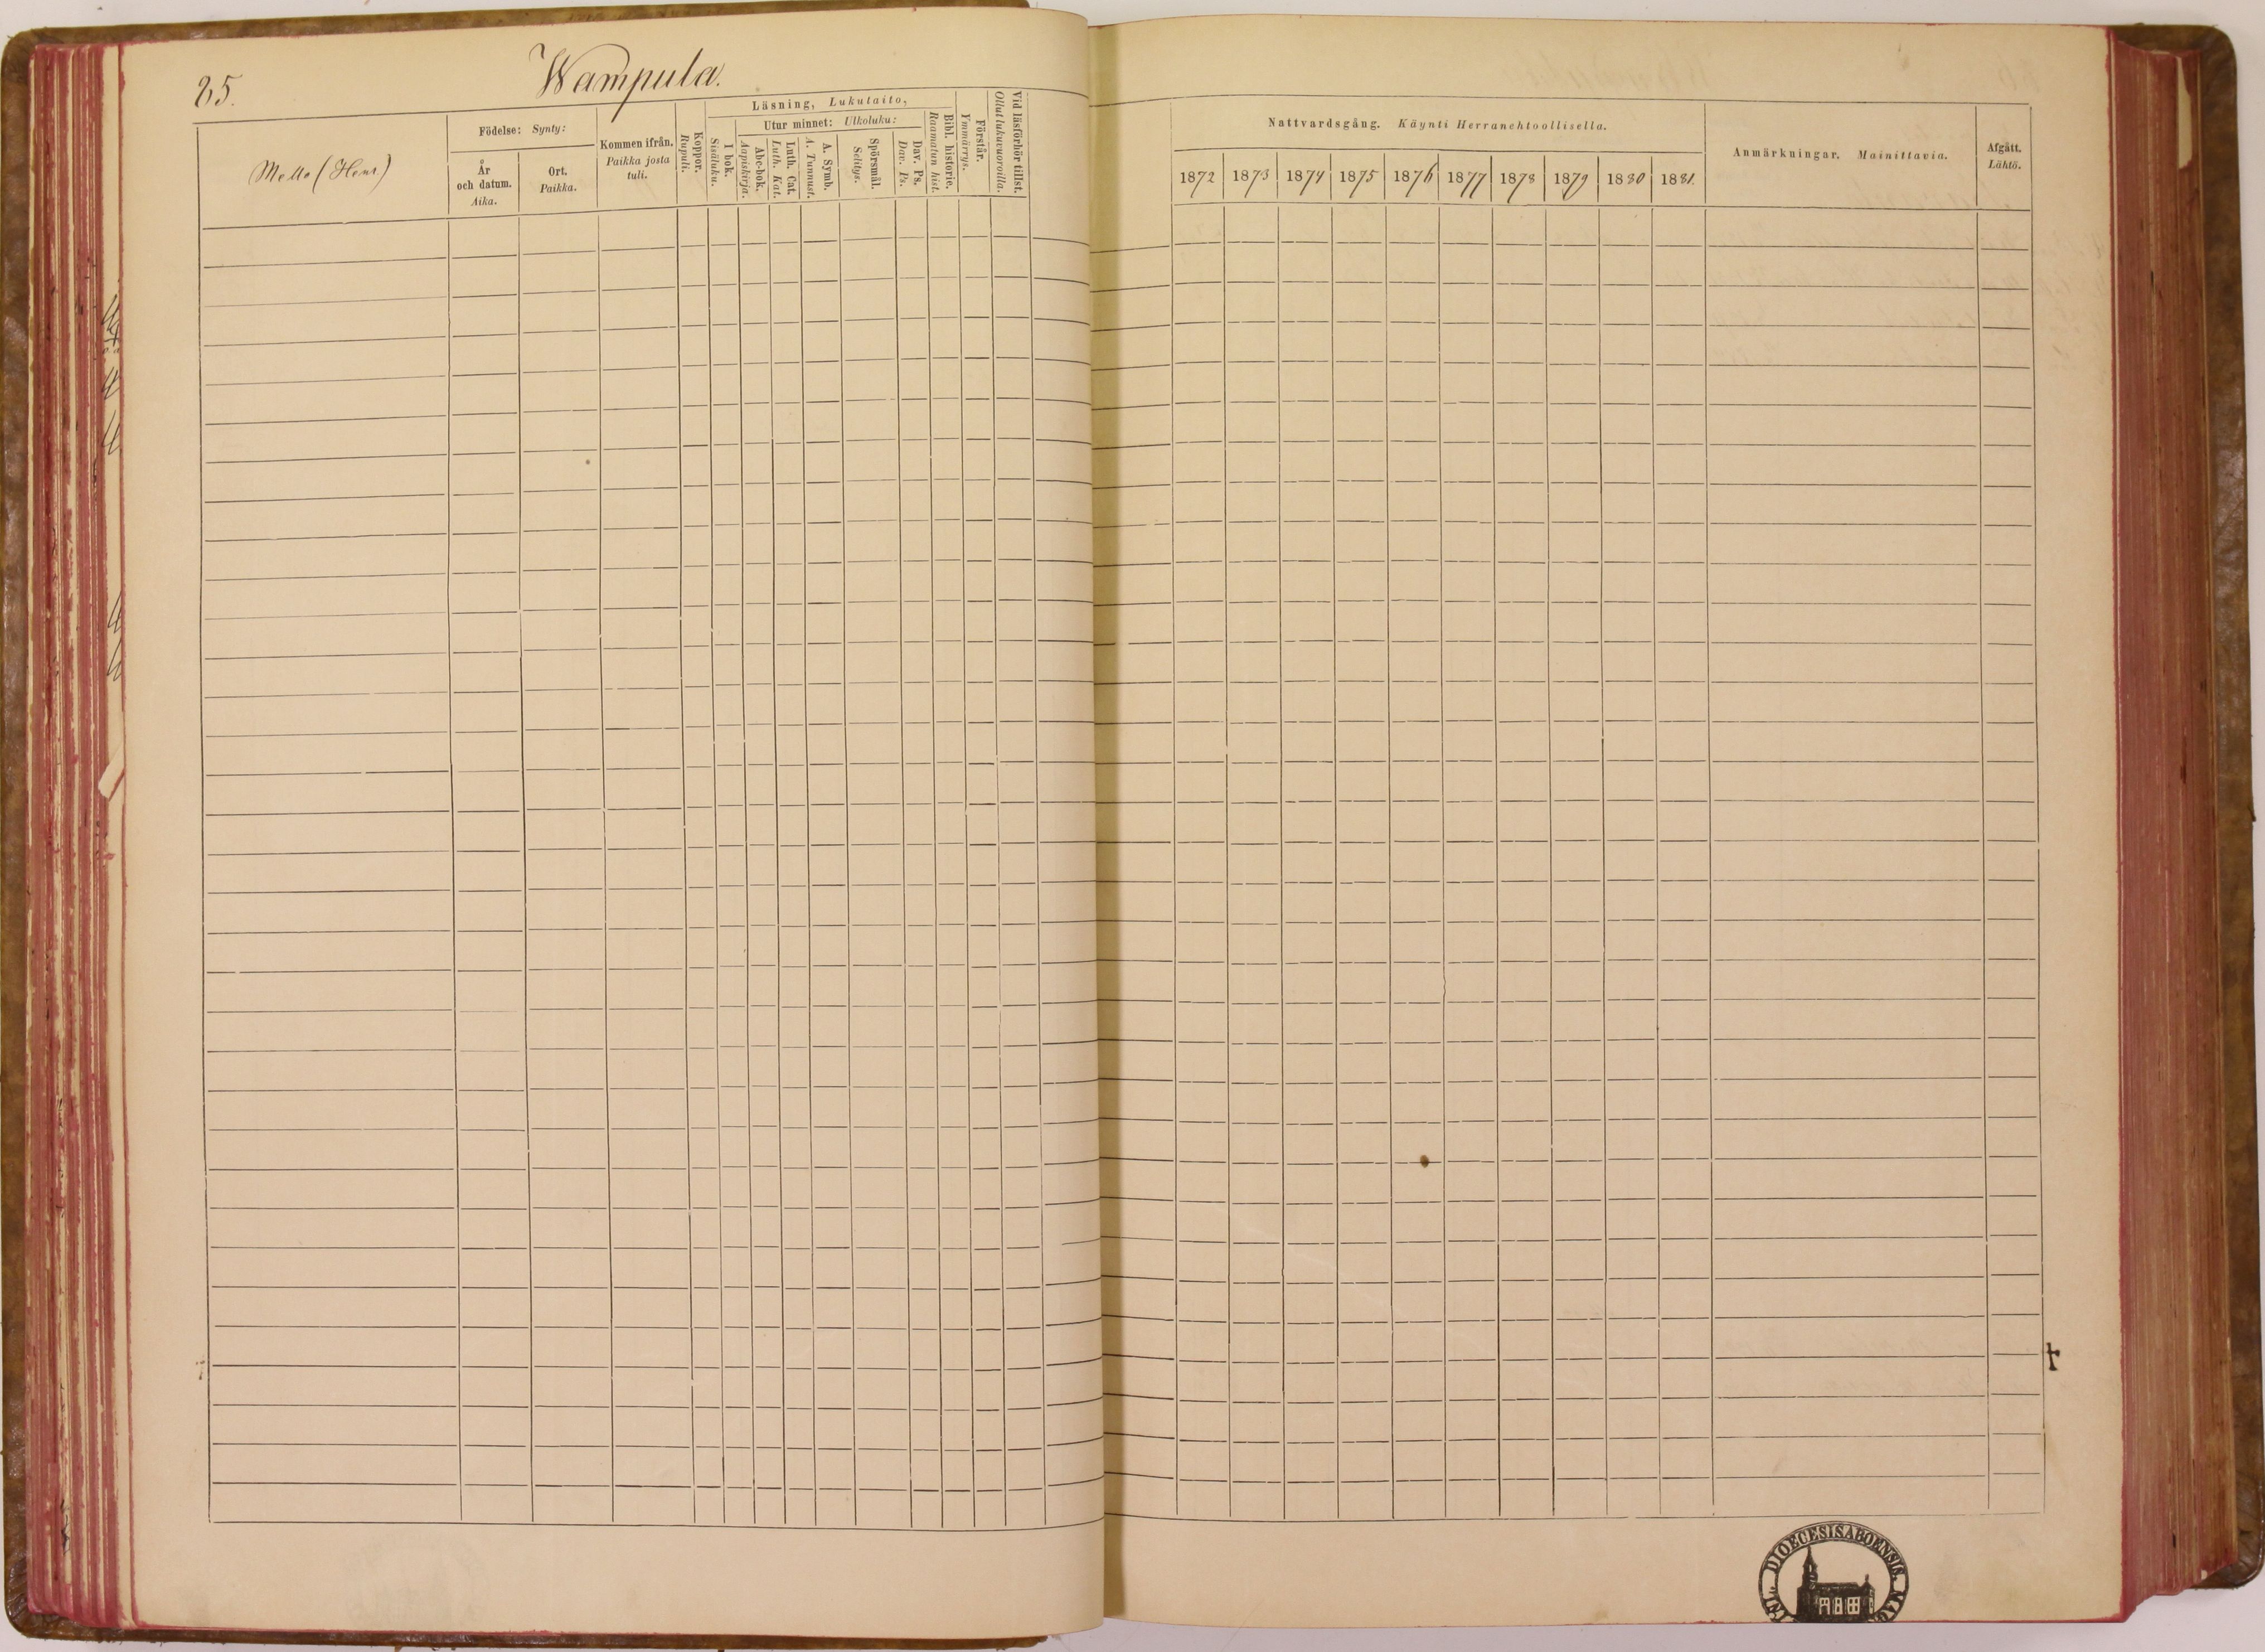 85.
Wampula.
Mello (Henr)
Födelse: Synty:
År
och datum.
Aika.
Ort.
Paikka.
Kommen ifrån.
Paikka josta
tuli.
Koppor.
Rupuli.
Läsning, Lukutaito,
I bok.
Sisäluku.
Utur minnet: Ulkoluku:
Abc-bok.
Aapiskirja.
Luth. Cat.
Luth. Kat.
A. Symb.
A. Tunnust.
Spörsmål.
Selitys.
Dav. Ps.
Dav. Ps.
Bibl. historie.
Raamatun hist.
Förstår.
Ymmärrys.
Vid läsförhör tillst.
Ollut lukuvuoroilla.
Nattvardsgång. Käynti Herranehtoollisella.
1872 1873 1874 1875 1876 1877 1878 1879 1880 1881.
Anmärkningar. Mainittavia.
Afgått.
Lähtö.
DIOECESIS ABOENSIS